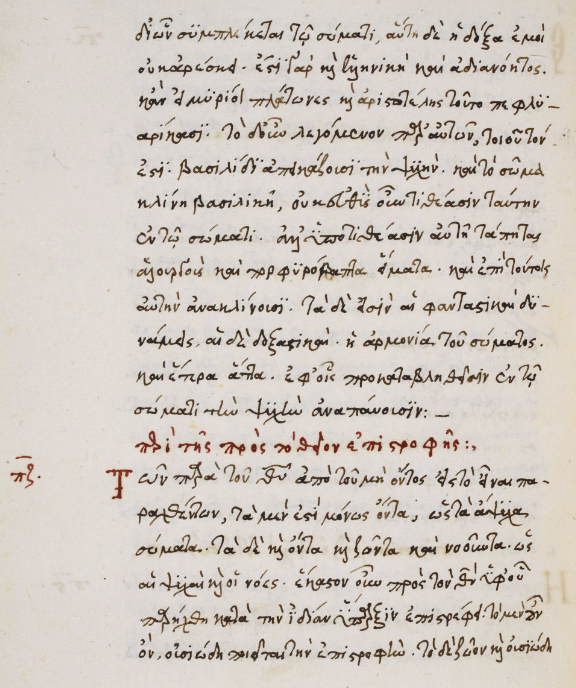 δίων συμπλέκεται τῷ σώματι, αὕτη δὲ ἡ δόξα ἐμοὶ
οὐκ ἀρέσκει. ἔστι γὰρ καὶ ἑλληνικὴ καὶ ἀδιανόητος.
κἂν εἰ μύριοι πλάτωνες καὶ ἀριστοτέλης τοῦτο πεφλυ-
αρήκασι. τὸ δ' οὖν λεγόμενον παρ' αὐτῶν, τοιοῦτόν
ἐστι. βασιλίδι ἀπεικάζουσι τὴν ψυχήν. καὶ τὸ σῶμα
κλίνη βασιλικῆ, οὐκ εὐθὺς οὖν τιθέασιν ταύτην
ἐν τῷ σώματι. ἀλλ' ὑποτιθέασιν αὐτῇ τάπητας
ἁλουργοὺς καὶ πορφυρόβαπτα εἵματα. καὶ ἐπὶ τούτοις
αὐτὴν ἀνακλίνουσι. τὰ δέ εἰσιν αἱ φανταστικαὶ δυ-
νάμεις, αἱ δὲ δοξαστικαὶ. ἡ ἁρμονία τοῦ σώματος.
καὶ ἕτερα ἄττα. ἐφ' οἷς προκαταβληθεῖσιν ἐν τῷ
σώματι τὴν ψυχὴν ἀναπαύουσιν:—
περὶ τῆς πρὸς τὸ θεῖον ἐπιστροφῆς:,
πζ. Τῶν παρὰ τοῦ θυ ἀπὸ τοῦ μὴ ὄντος εἰς τὸ εἶναι πα-
ραχθέντων, τὰ μὲν ἐστὶ μόνως ὄντα, ὡς τὰ ἄψυχα
σώματα. τὰ δὲ καὶ ὄντα καὶ ζῶντα καὶ νοοῦντα. ὡς
αἱ ψυχαὶ καὶ οἱ νόες. ἕκαστον οὖν πρὸς τὸν θν ὑφ' οὗ
παρήχθη κατὰ τὴν ἰδίαν ὕπαρξιν ἐπιστρέφει. τὸ μὲν
ὂν, οὐσιώδη ποιεῖται τὴν ἐπιστροφήν. τὸ δὲ ζῶον καὶ οὐσιώδη